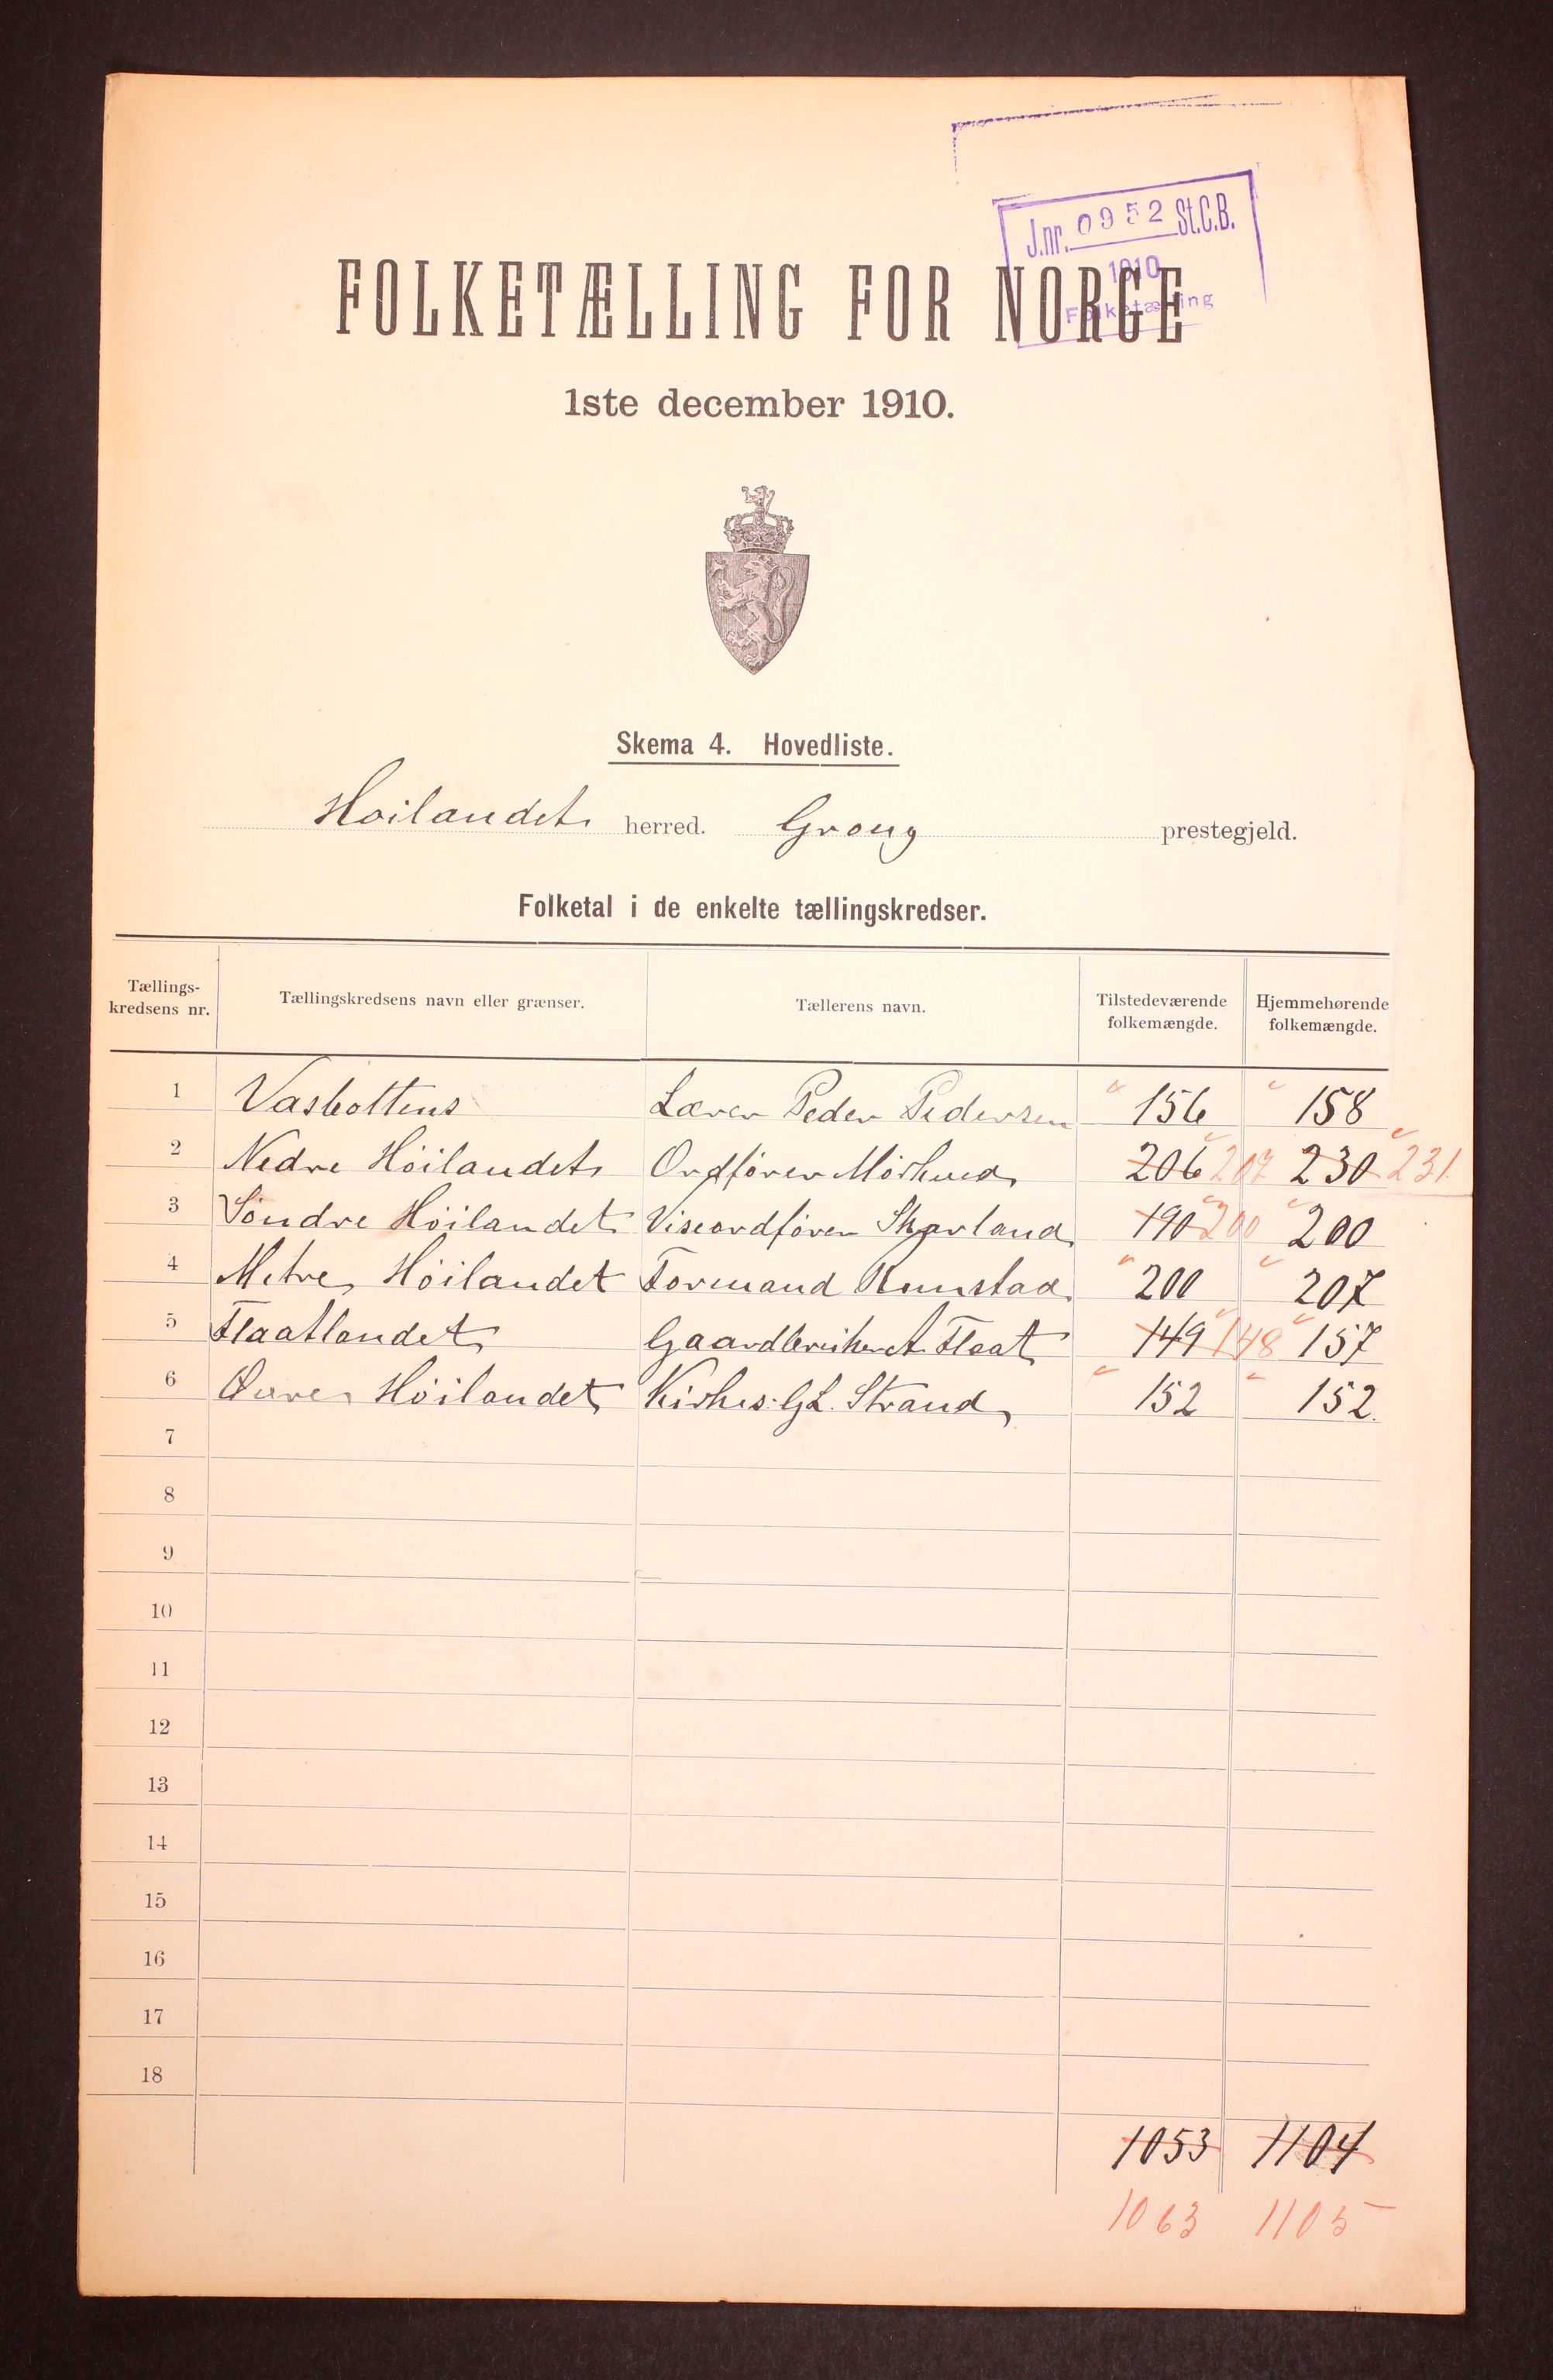 J.nr. 0952 St.C.B.
1910
Folketælling
FOLKETÆLLING FOR NORGE
1ste december 1910.
Skema 4. Hovedliste.
Høilandet herred. Grong prestegjeld.
Folketal i de enkelte tællingskredser.
Tællings-kredsens nr. Tællingskredsens navn eller grænser. Tællerens navn. Tilstedeværende folkemængde. Hjemmehørende folkemængde.
1 Vasbottens Lærer Peder Pedersen 156 158
2 Nedre Höilandet Ordförer Mörkved 206 207 230 231
3 Söndre Höilandet Viseordförer Skarland 190 200 200
4 Metre Höilandet Formand Kunstad 200 207
5 Flaatlandet Gaardbruker A. Flaat 149 148 157
6 Övre Höilandet Kirkes. G L. Strand 152 152.
7
8
9
10
11
12
13
14
15
16
17
18
1053 1104
1063 1105